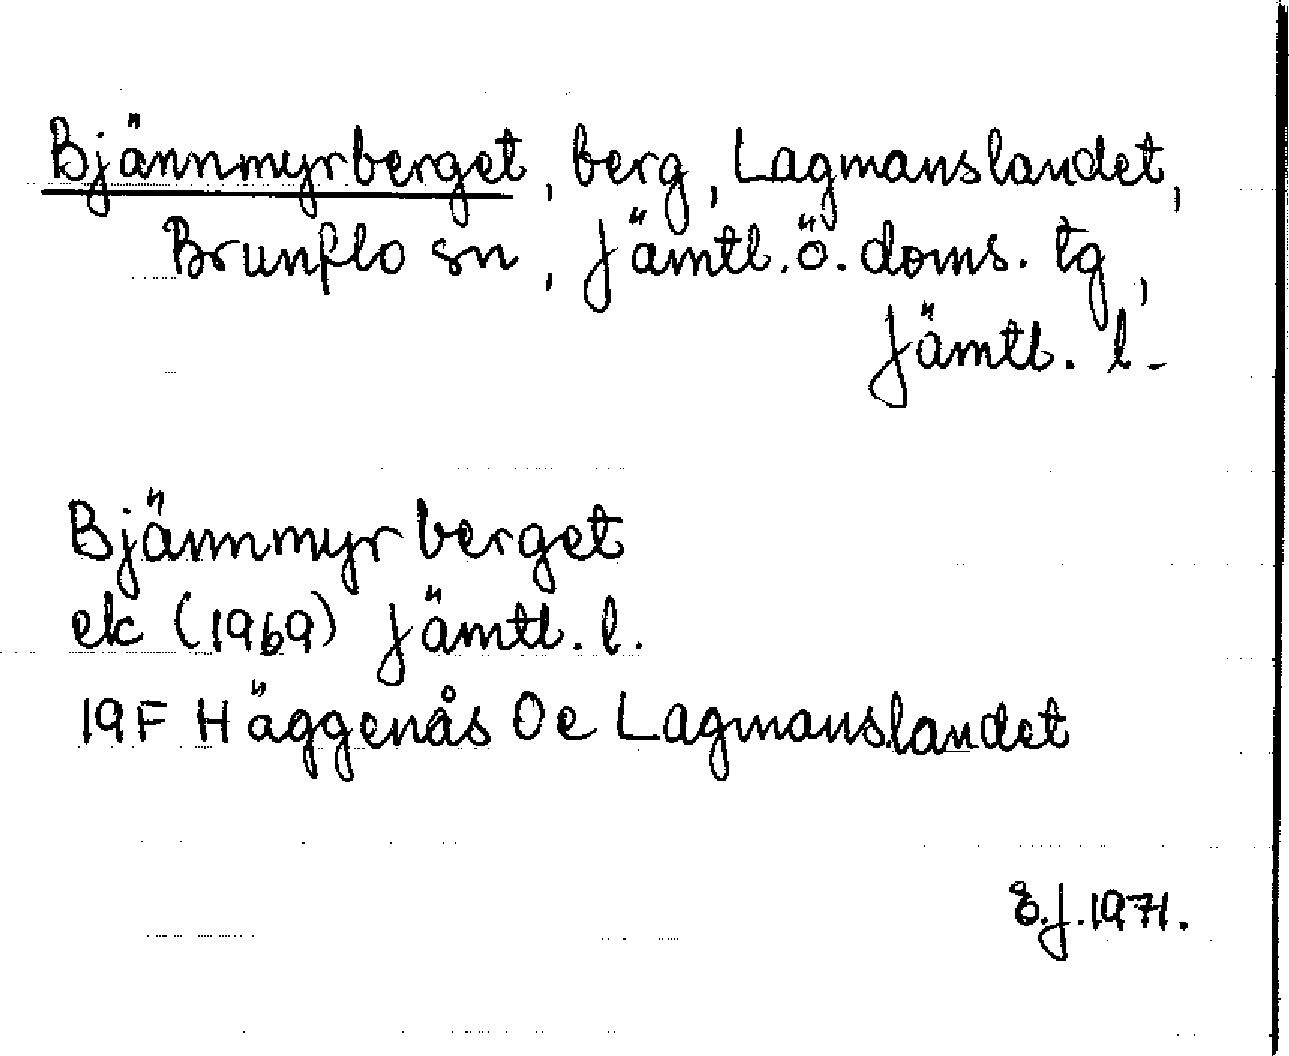 Bjännmyrberget, berg, Lagmanslandet,
Brunflo sn, Jämtl. ö. doms. tg,
Jämtl. l.
Bjännmyrberget
ek (1969) Jämtl. l.
19F Häggenås 0e Lagmanslandet
E.J. 1971.